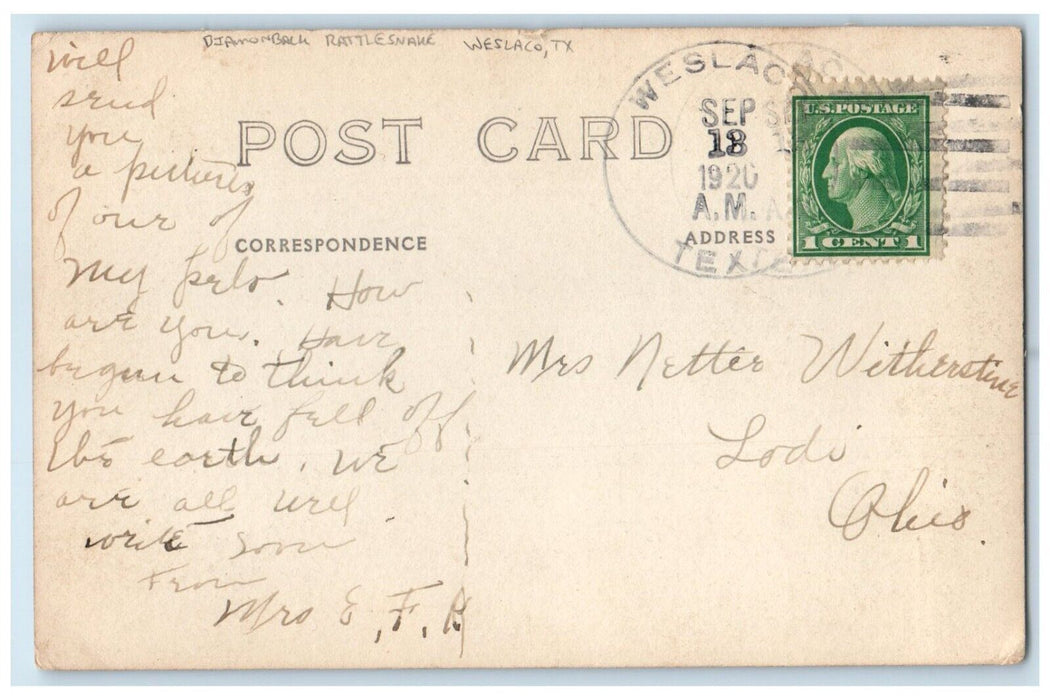 DIAMONBACK RATTLESNAKE WESLACO, TX
will
send
you
a pictures
of our of
My pets. How
are you. Have
begun to think
you have fell off
the earth. We
are all well
write soon
From
Mrs E. F. K
POST CARD
CORRESPONDENCE
ADDRESS
WESLACO
SEP
18
1920
A.M.
TEX
U.S. POSTAGE
1 CENT 1
Mrs Netter Witherstine
Lodi
Ohio.